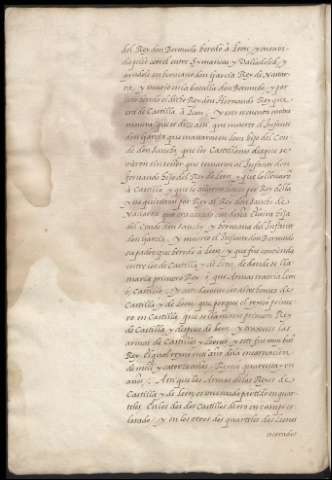 del Rey don Bermudo heredo à Leon, y ovo ba-
talla con el entre Symancas y Valladolid, y
ayudole su hermano don Garcia Rey de navar-
ra, y murio en la batalla don Bermudo, y por
esto heredo el dicho Rey don Hernando Rey que
era de Castilla à Leon, y esto se cuenta
manera que se dize assi, que muerto el Infante
don Garcia que mataron en leon hijo del Con-
de don Sancho, que los Castellanos despues se
vieron sin señor que tomaron al Infante don
fernando hijo del Rey de Leon, y que lo llevaron
à Castilla, y que le alçaron por Rey della
y no quisieron por Rey al Rey don Sancho de
Navarra que era casado con doña Elvira hija
del Conde don Sancho, y hermana del Infante
don Garcia, y muerto el Infante don Bermudo
su padre que heredo à Leon, y que fue contienda
entre los de Castilla y de Leon, de donde se lla-
maria primero Rey, ò que Armas traeria leon
ò Castilla, y
Castilla y de leon, que porque el reyno prime-
ro en Castilla, que se llamasse primero Rey
de Castilla y despues de leon, y truxesse las
armas de Castillo y Leones, y este fue muy buen
Rey. El qual reyno era año dela encarnacion
de mill y catorze años. Reyno quarenta y un
años. Assi que las Armas delos Reyes de
Castilla y de Leon es un escudo partido en quar-
teles. En los dos dos Castillos de oro en campo co-
lorado, y en los otros dos quarteles dos Leones
morados